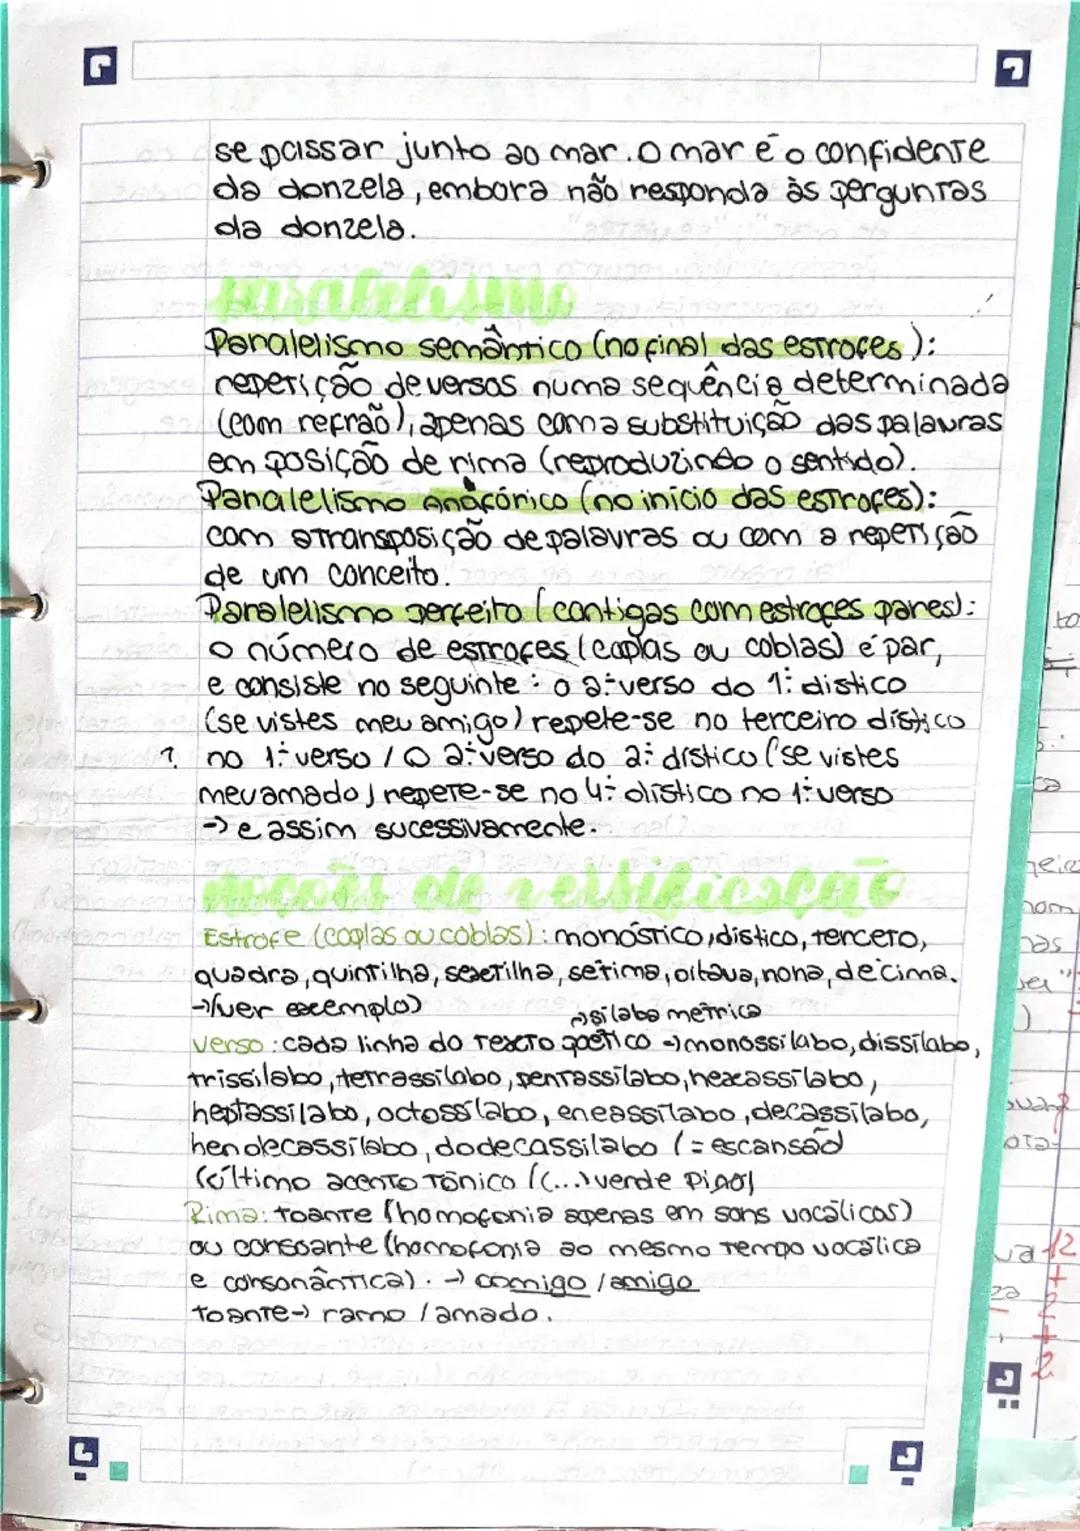 se passar junto ao mar. O mar é o confidente
da donzela, embora não responda às perguntas
da donzela.
paralelismo
Paralelismo semântico (no final das estrofes):
repetição de versos numa sequência determinada
(com refrão), apenas com a substituição das palavras
em posição de rima (reproduzindo o sentido).
Paralelismo Anafórico (no início das estrofes):
com a transposição de palavras ou com a repetição
de um conceito.
Paralelismo perfeito (cantigas com estrofes pares):
o número de estrofes (coplas ou coblas) é par,
e consiste no seguinte: o 2º verso do 1º dístico
(se vistes meu amigo) repete-se no terceiro dístico
? no 1º verso / O 2º verso do 2º dístico (se vistes
meu amado) repete-se no 4º dístico no 1º verso
→ e assim sucessivamente.
noções de versificação
Estrofe (coplas ou coblas): monóstico, dístico, terceto,
quadra, quintilha, sextilha, sétima, oitava, nona, décima.
→ (ver exemplo)
→ sílaba métrica
Verso: cada linha do texto poético → monossílabo, dissílabo,
trissílabo, tetrassílabo, pentassílabo, hexassílabo,
heptassílabo, octossílabo, eneassílabo, decassílabo,
hendecassílabo, dodecassílabo (= escansão
(último acento tónico ((...) verde pino)
Rima: toante (homofonia apenas em sons vocálicos)
ou consoante (homofonia ao mesmo tempo vocálica
e consonântica). → comigo / amigo
toante → ramo / amado.
12
+
2
+
2